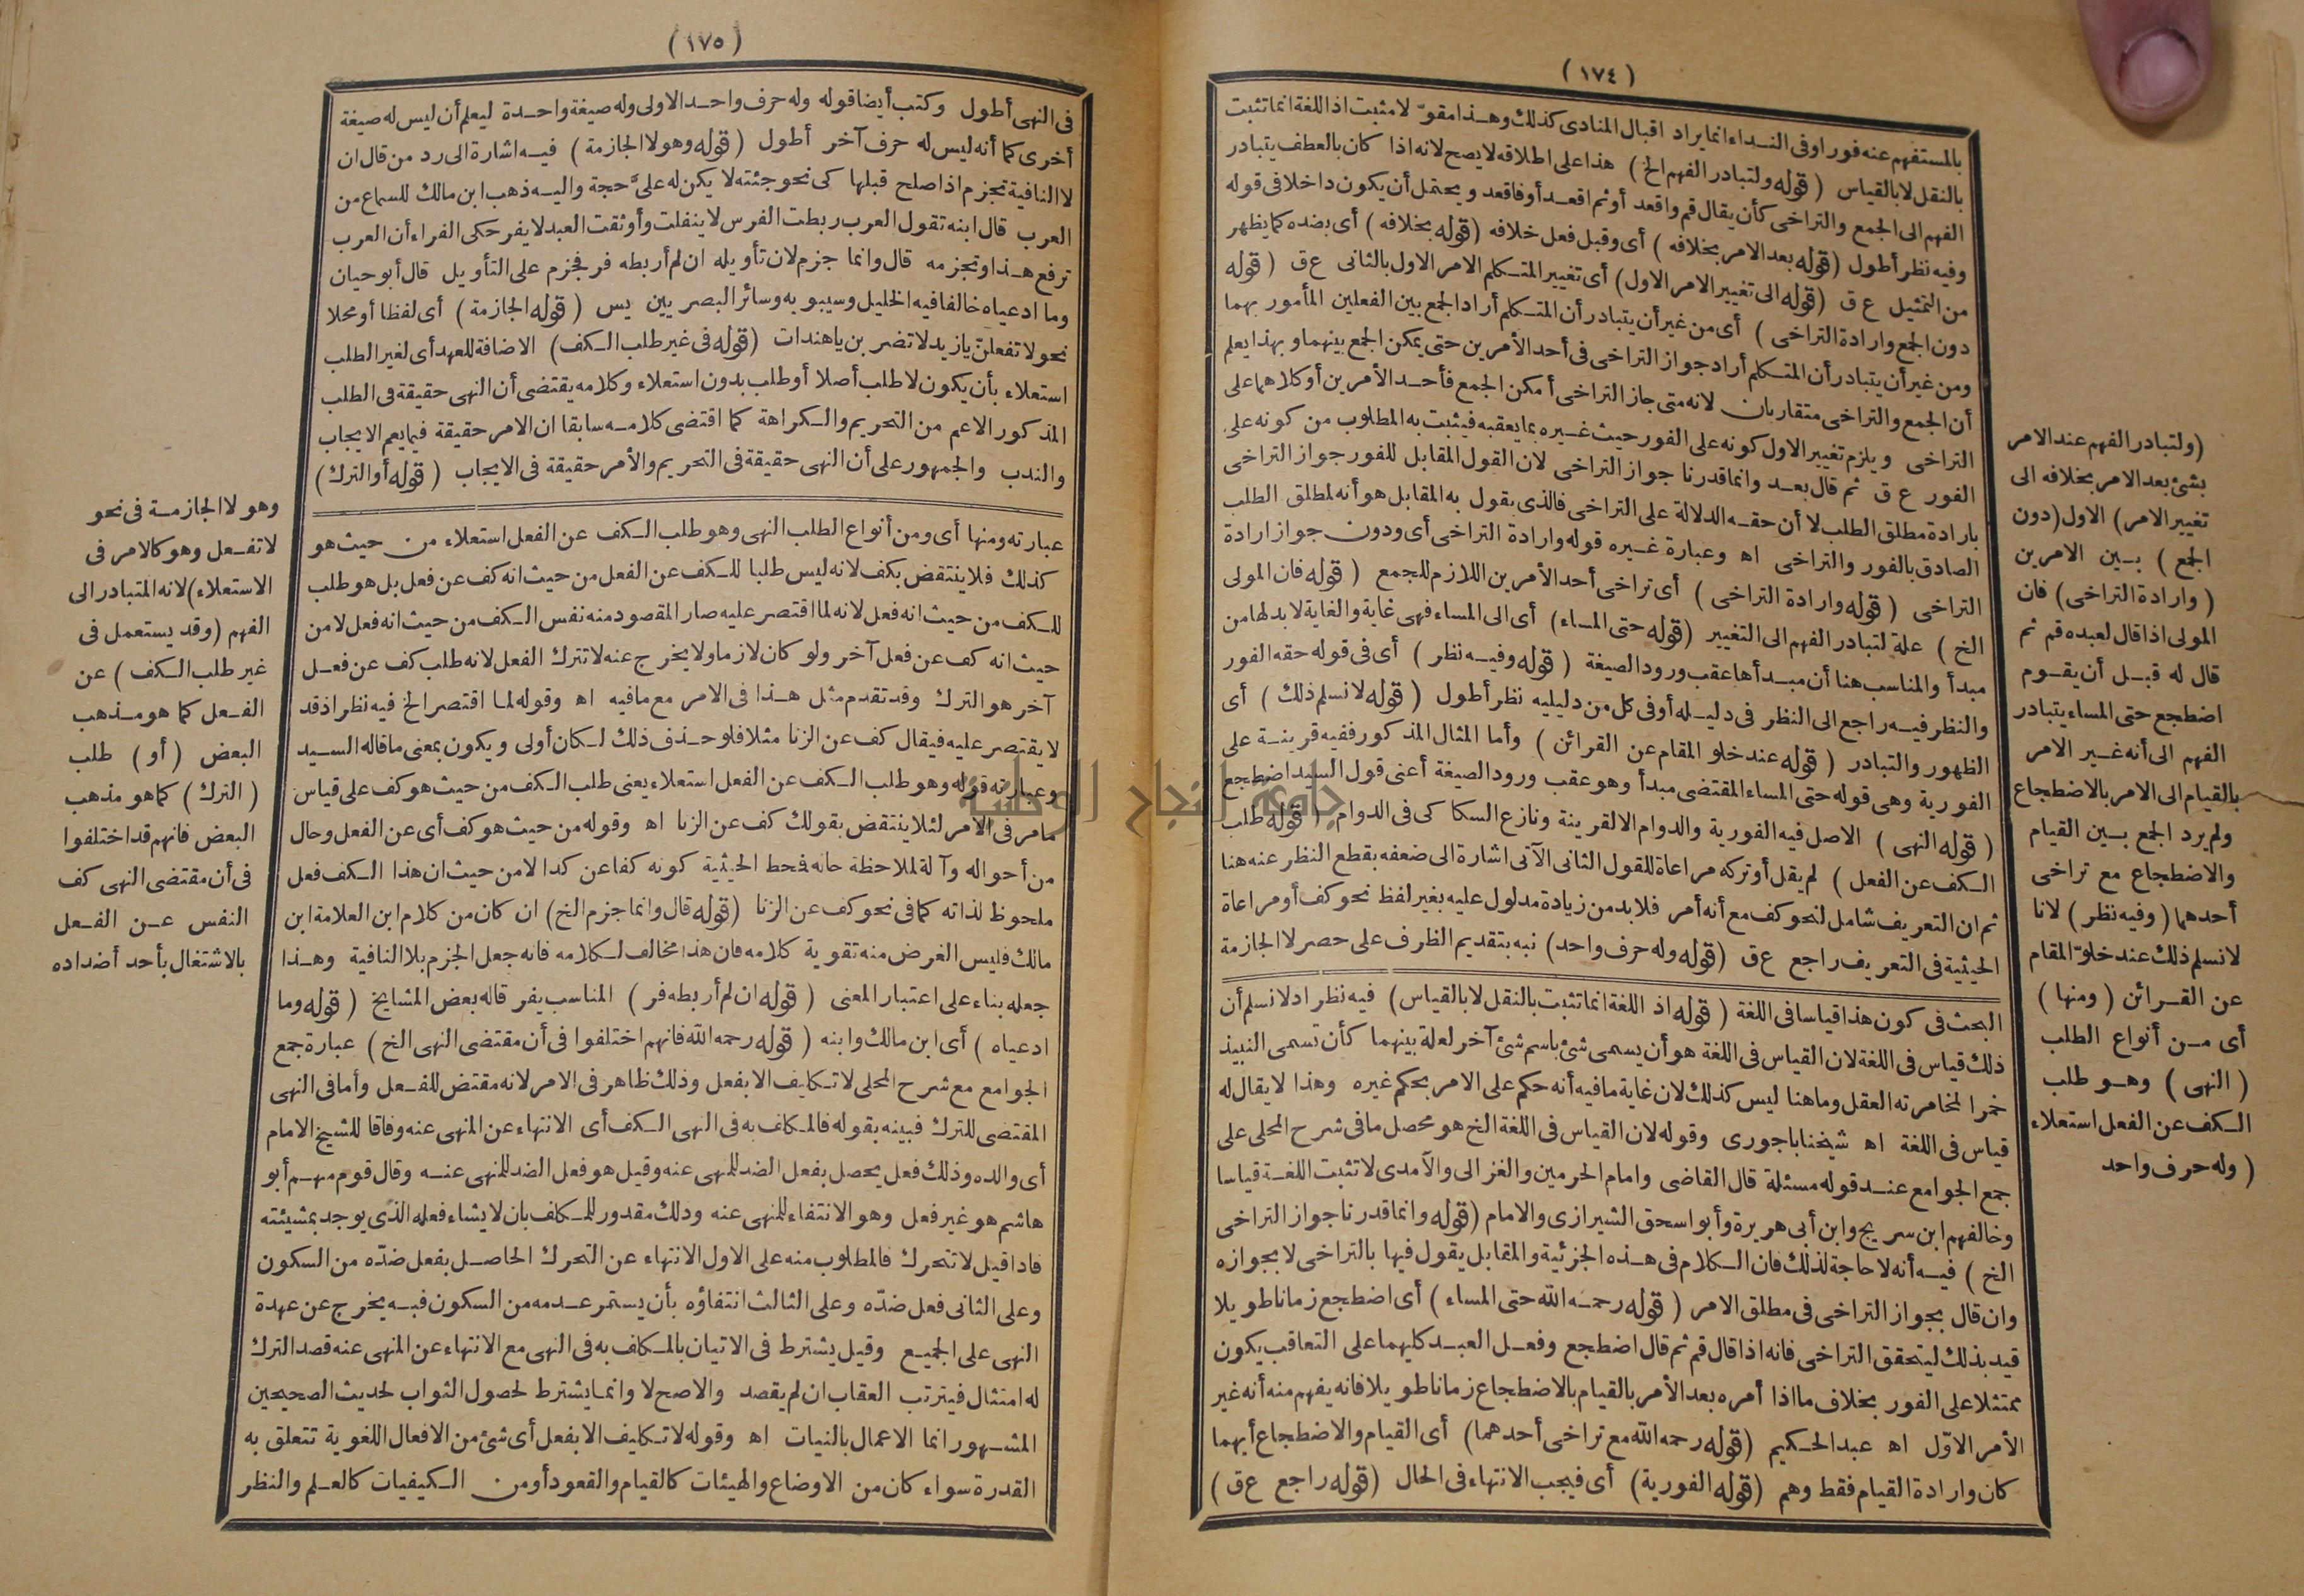 (١٧٤)
بالمستفهم عنه فورا وفى النداء انما يراد اقبال المنادى كذلك وهذا مقوّ لا مثبت اذ اللغة انما تثبت
بالنقل لا بالقياس (قوله ولتبادر الفهم الخ) هذا على اطلاقه لا يصح لانه اذا كان بالعطف يتبادر
الفهم الى الجمع والتراخى كأن يقال قم واقعد أو ثم اقعد أو فاقعد ويحتمل أن يكون داخلا فى قوله
وفيه نظر أطول (قوله بعد الامر بخلافه) أى وقبل فعل خلافه (قوله بخلافه) أى بضده كما يظهر
من التمثيل ع ق (قوله الى تغيير الامر الاول) أى تغيير المتكلم الامر الاول بالثانى ع ق (قوله
دون الجمع وارادة التراخى) أى من غير أن يتبادر أن المتكلم أراد الجمع بين الفعلين المأمور بهما
ومن غير أن يتبادر أن المتكلم أراد جواز التراخى فى أحد الأمرين حتى يمكن الجمع بينهما وبهذا يعلم
أن الجمع والتراخى متقاربان لانه متى جاز التراخى أمكن الجمع فأحد الأمرين أو كلاهما على
التراخى ويلزم تغيير الاول كونه على الفور حيث غيره بما يعقبه فيثبت به المطلوب من كونه على
الفور ع ق ثم قال بعد وانما قدرنا جواز التراخى لان القول المقابل للفور جواز التراخى
بارادة مطلق الطلب لا أن حقه الدلالة على التراخى فالذى يقول به المقابل هو أنه لمطلق الطلب
الصادق بالفور والتراخى اه وعبارة غيره قوله وارادة التراخى أى ودون جواز ارادة
التراخى (قوله وارادة التراخى) أى تراخى أحد الأمرين اللازم للجمع (قوله فان المولى
الخ) علة لتبادر الفهم الى التغيير (قوله حتى المساء) أى الى المساء فهى غاية والغاية لا بد لها من
مبدأ والمناسب هنا أن مبدأها عقب ورود الصيغة (قوله وفيه نظر) أى فى قوله حقه الفور
والنظر فيه راجع الى النظر فى دليله أو فى كل من دليليه نظر أطول (قوله لا نسلم ذلك) أى
الظهور والتبادر (قوله عند خلو المقام عن القرائن) وأما المثال المذكور ففيه قرينة على
الفورية وهى قوله حتى المساء المقتضى مبدأ وهو عقب ورود الصيغة أعنى قول السيد اضطجع
(قوله النهى) الاصل فيه الفورية والدوام الا لقرينة ونازع السكاكى فى الدوام (قوله طلب
الكف عن الفعل) لم يقل أو تركه مراعاة للقول الثانى الآتى اشارة الى ضعفه بقطع النظر عنه هنا
ثم ان التعريف شامل لنحو كف مع أنه أمر فلا بد من زيادة مدلول عليه بغير لفظ نحو كف أو مراعاة
الحيثية فى التعريف راجع ع ق (قوله وله حرف واحد) نبه بتقديم الظرف على حصر لا الجازمة
البحث فى كون هذا قياسا فى اللغة (قوله اذ اللغة انما تثبت بالنقل لا بالقياس) فيه نظر اذ لا نسلم أن
ذلك قياس فى اللغة لان القياس فى اللغة هو أن يسمى شئ باسم شئ آخر لعلة بينهما كأن تسمى النبيذ
خمرا لمخامرته العقل وما هنا ليس كذلك لان غاية ما فيه أنه حكم على الامر بحكم غيره وهذا لا يقال له
قياس فى اللغة اه شيخنا باجورى وقوله لان القياس فى اللغة الخ هو محصل ما فى شرح المحلى على
جمع الجوامع عند قوله مسئلة قال القاضى وامام الحرمين والغزالى والآمدى لا تثبت اللغة قياسا
وخالفهم ابن سريج وابن أبى هريرة وأبو اسحق الشيرازى والامام (قوله وانما قدرنا جواز التراخى
الخ) فيه أنه لا حاجة لذلك فان الكلام فى هذه الجزئية والمقابل يقول فيها بالتراخى لا بجوازه
وان قال بجواز التراخى فى مطلق الامر (قوله رحمه الله حتى المساء) أى اضطجع زمانا طويلا
قيد بذلك ليتحقق التراخى فانه اذا قال قم ثم قال اضطجع وفعل العبد كليهما على التعاقب يكون
ممتثلا على الفور بخلاف ما اذا أمره بعد الأمر بالقيام بالاضطجاع زمانا طويلا فانه يفهم منه أنه غير
الأمر الاوّل اه عبد الحكيم (قوله رحمه الله مع تراخى أحدهما) أى القيام والاضطجاع أيهما
كان وارادة القيام فقط وهم (قوله الفورية) أى فيجب الانتهاء فى الحال (قوله راجع ع ق)
(ولتبادر الفهم عند الامر
بشئ بعد الامر بخلافه الى
تغيير الامر) الاول (دون
الجمع) بين الامرين
(وارادة التراخى) فان
المولى اذا قال لعبده قم ثم
قال له قبل أن يقوم
اضطجع حتى المساء يتبادر
الفهم الى أنه غير الامر
بالقيام الى الامر بالاضطجاع
ولم يرد الجمع بين القيام
والاضطجاع مع تراخى
أحدهما (وفيه نظر) لانا
لا نسلم ذلك عند خلوّ المقام
عن القرائن (ومنها)
أى من أنواع الطلب
(النهى) وهو طلب
الكف عن الفعل استعلاء
(وله حرف واحد
(١٧٥)
فى النهى أطول وكتب أيضا قوله وله حرف واحد الاولى وله صيغة واحدة ليعلم أن ليس له صيغة
أخرى كما أنه ليس له حرف آخر أطول (قوله وهو لا الجازمة) فيه اشارة الى رد من قال ان
لا النافية تجزم اذا صلح قبلها كى نحو جئته لا يكن له علىّ حجة واليه ذهب ابن مالك للسماع من
العرب قال ابنه تقول العرب ربطت الفرس لا ينفلت وأوثقت العبد لا يفر حكى الفراء أن العرب
ترفع هذا وتجزمه قال وانما جزم لان تأويله ان لم أربطه فر فجزم على التأويل قال أبو حيان
وما ادعياه خالفا فيه الخليل وسيبويه وسائر البصريين يس (قوله الجازمة) أى لفظا أو محلا
نحو لا تفعلنّ يا زيد لا تضربن يا هندات (قوله فى غير طلب الكف) الاضافة للعهد أى لغير الطلب
استعلاء بأن يكون لا طلب أصلا أو طلب بدون استعلاء وكلامه يقتضى أن النهى حقيقة فى الطلب
المذكور الاعم من التحريم والكراهة كما اقتضى كلامه سابقا ان الامر حقيقة فيما يعم الايجاب
والندب والجمهور على أن النهى حقيقة فى التحريم والأمر حقيقة فى الايجاب (قوله أو الترك)
عبارته ومنها أى ومن أنواع الطلب النهى وهو طلب الكف عن الفعل استعلاء من حيث هو
كذلك فلا ينتقض بكف لانه ليس طلبا للكف عن الفعل من حيث انه كف عن فعل بل هو طلب
للكف من حيث انه فعل لانه لما اقتصر عليه صار المقصود منه نفس الكف من حيث انه فعل لا من
حيث انه كف عن فعل آخر ولو كان لازما ولا يخرج عنه لا تترك الفعل لانه طلب كف عن فعل
آخر هو الترك وقد تقدم مثل هذا فى الامر مع ما فيه اه وقوله لما اقتصر الخ فيه نظر اذ قد
لا يقتصر عليه فيقال كف عن الزنا مثلا فلو حذف ذلك لكان أولى ويكون بمعنى ما قاله السيد
وعبارته قوله وهو طلب الكف عن الفعل استعلاء يعنى طلب الكف من حيث هو كف على قياس
مامر فى الامر لئلا ينتقض بقولك كف عن الزنا اه وقوله من حيث هو كف أى عن الفعل وحال
من أحواله وآلة لملاحظة حاله فحط الحيثية كونه كفا عن كذا لا من حيث ان هذا الكف فعل
ملحوظ لذاته كما فى نحو كف عن الزنا (قوله قال وانما جزم الخ) ان كان من كلام ابن العلامة ابن
مالك فليس الغرض منه تقوية كلامه فان هذا مخالف لكلامه فانه جعل الجزم بلا النافية وهذا
جعله بناء على اعتبار المعنى (قوله ان لم أربطه فر) المناسب يفر قاله بعض المشايخ (قوله وما
ادعياه) أى ابن مالك وابنه (قوله رحمه الله فانهم اختلفوا فى أن مقتضى النهى الخ) عبارة جمع
الجوامع مع شرح المحلى لا تكليف الا بفعل وذلك ظاهر فى الامر لانه مقتض للفعل وأما فى النهى
المقتضى للترك فبينه بقوله فالمكلف به فى النهى الكف أى الانتهاء عن المنهى عنه وفاقا للشيخ الامام
أى والده وذلك فعل يحصل بفعل الضد للمنهى عنه وقيل هو فعل الضد للمنهى عنه وقال قوم منهم أبو
هاشم هو غير فعل وهو الانتفاء للمنهى عنه وذلك مقدور للمكلف بان لا يشاء فعله الذى يوجد بمشيئته
فاذا قيل لا تتحرك فالمطلوب منه على الاول الانتهاء عن التحرك الحاصل بفعل ضدّه من السكون
وعلى الثانى فعل ضدّه وعلى الثالث انتفاؤه بأن يستمر عدمه من السكون فبه يخرج عن عهدة
النهى على الجميع وقيل يشترط فى الاتيان بالمكلف به فى النهى مع الانتهاء عن المنهى عنه قصد الترك
له امتثال فيترتب العقاب ان لم يقصد والاصح لا وانما يشترط لحصول الثواب لحديث الصحيحين
المشهور انما الاعمال بالنيات اه وقوله لا تكليف الا بفعل أى شئ من الافعال اللغوية تتعلق به
القدرة سواء كان من الاوضاع والهيئات كالقيام والقعود أو من الكيفيات كالعلم والنظر
وهو لا الجازمة فى نحو
لا تفعل وهو كالامر فى
الاستعلاء) لانه المتبادر الى
الفهم (وقد يستعمل فى
غير طلب الكف) عن
الفعل كما هو مذهب
البعض (أو) طلب
(الترك) كما هو مذهب
البعض فانهم قد اختلفوا
فى أن مقتضى النهى كف
النفس عن الفعل
بالاشتغال بأحد أضداده
جامعة النجاح الوطنية